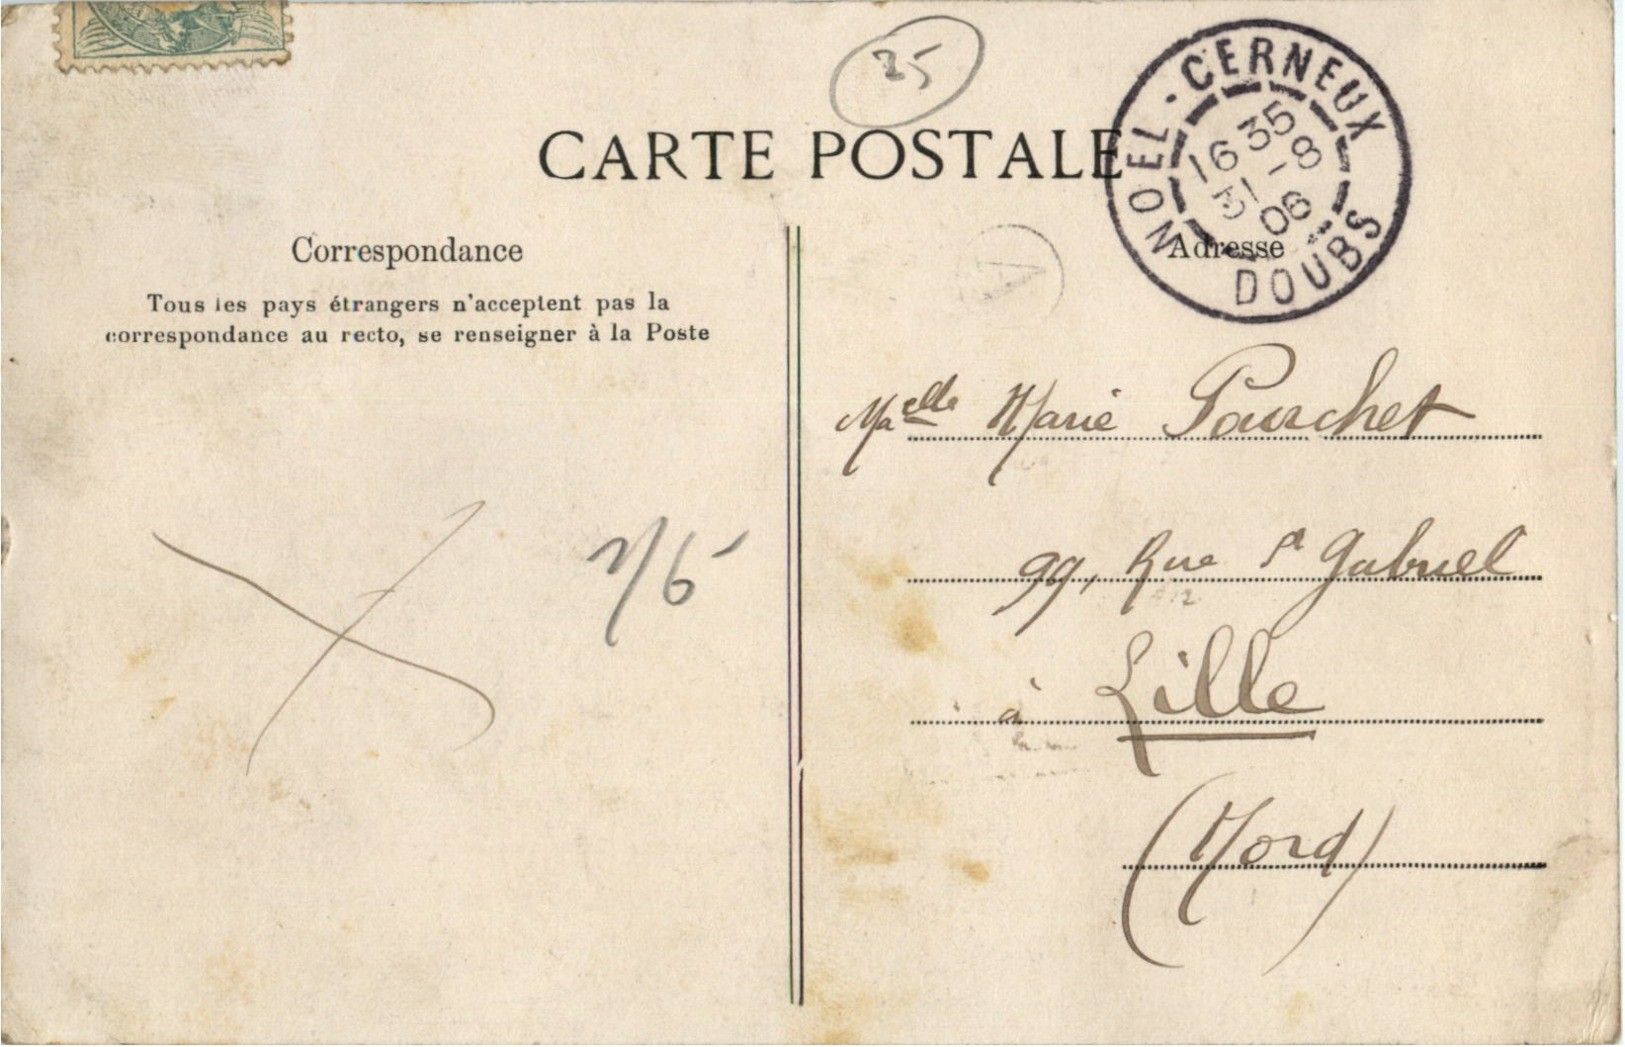 25
CARTE POSTALE
NOEL-CERNEUX
16 35
31-8
06
DOUBS
Correspondance
Adresse
Tous les pays étrangers n'acceptent pas la
correspondance au recto, se renseigner à la Poste
A
Ma elle Marie Pourchet
99, Rue St Gabriel
à Lille
(Nord)